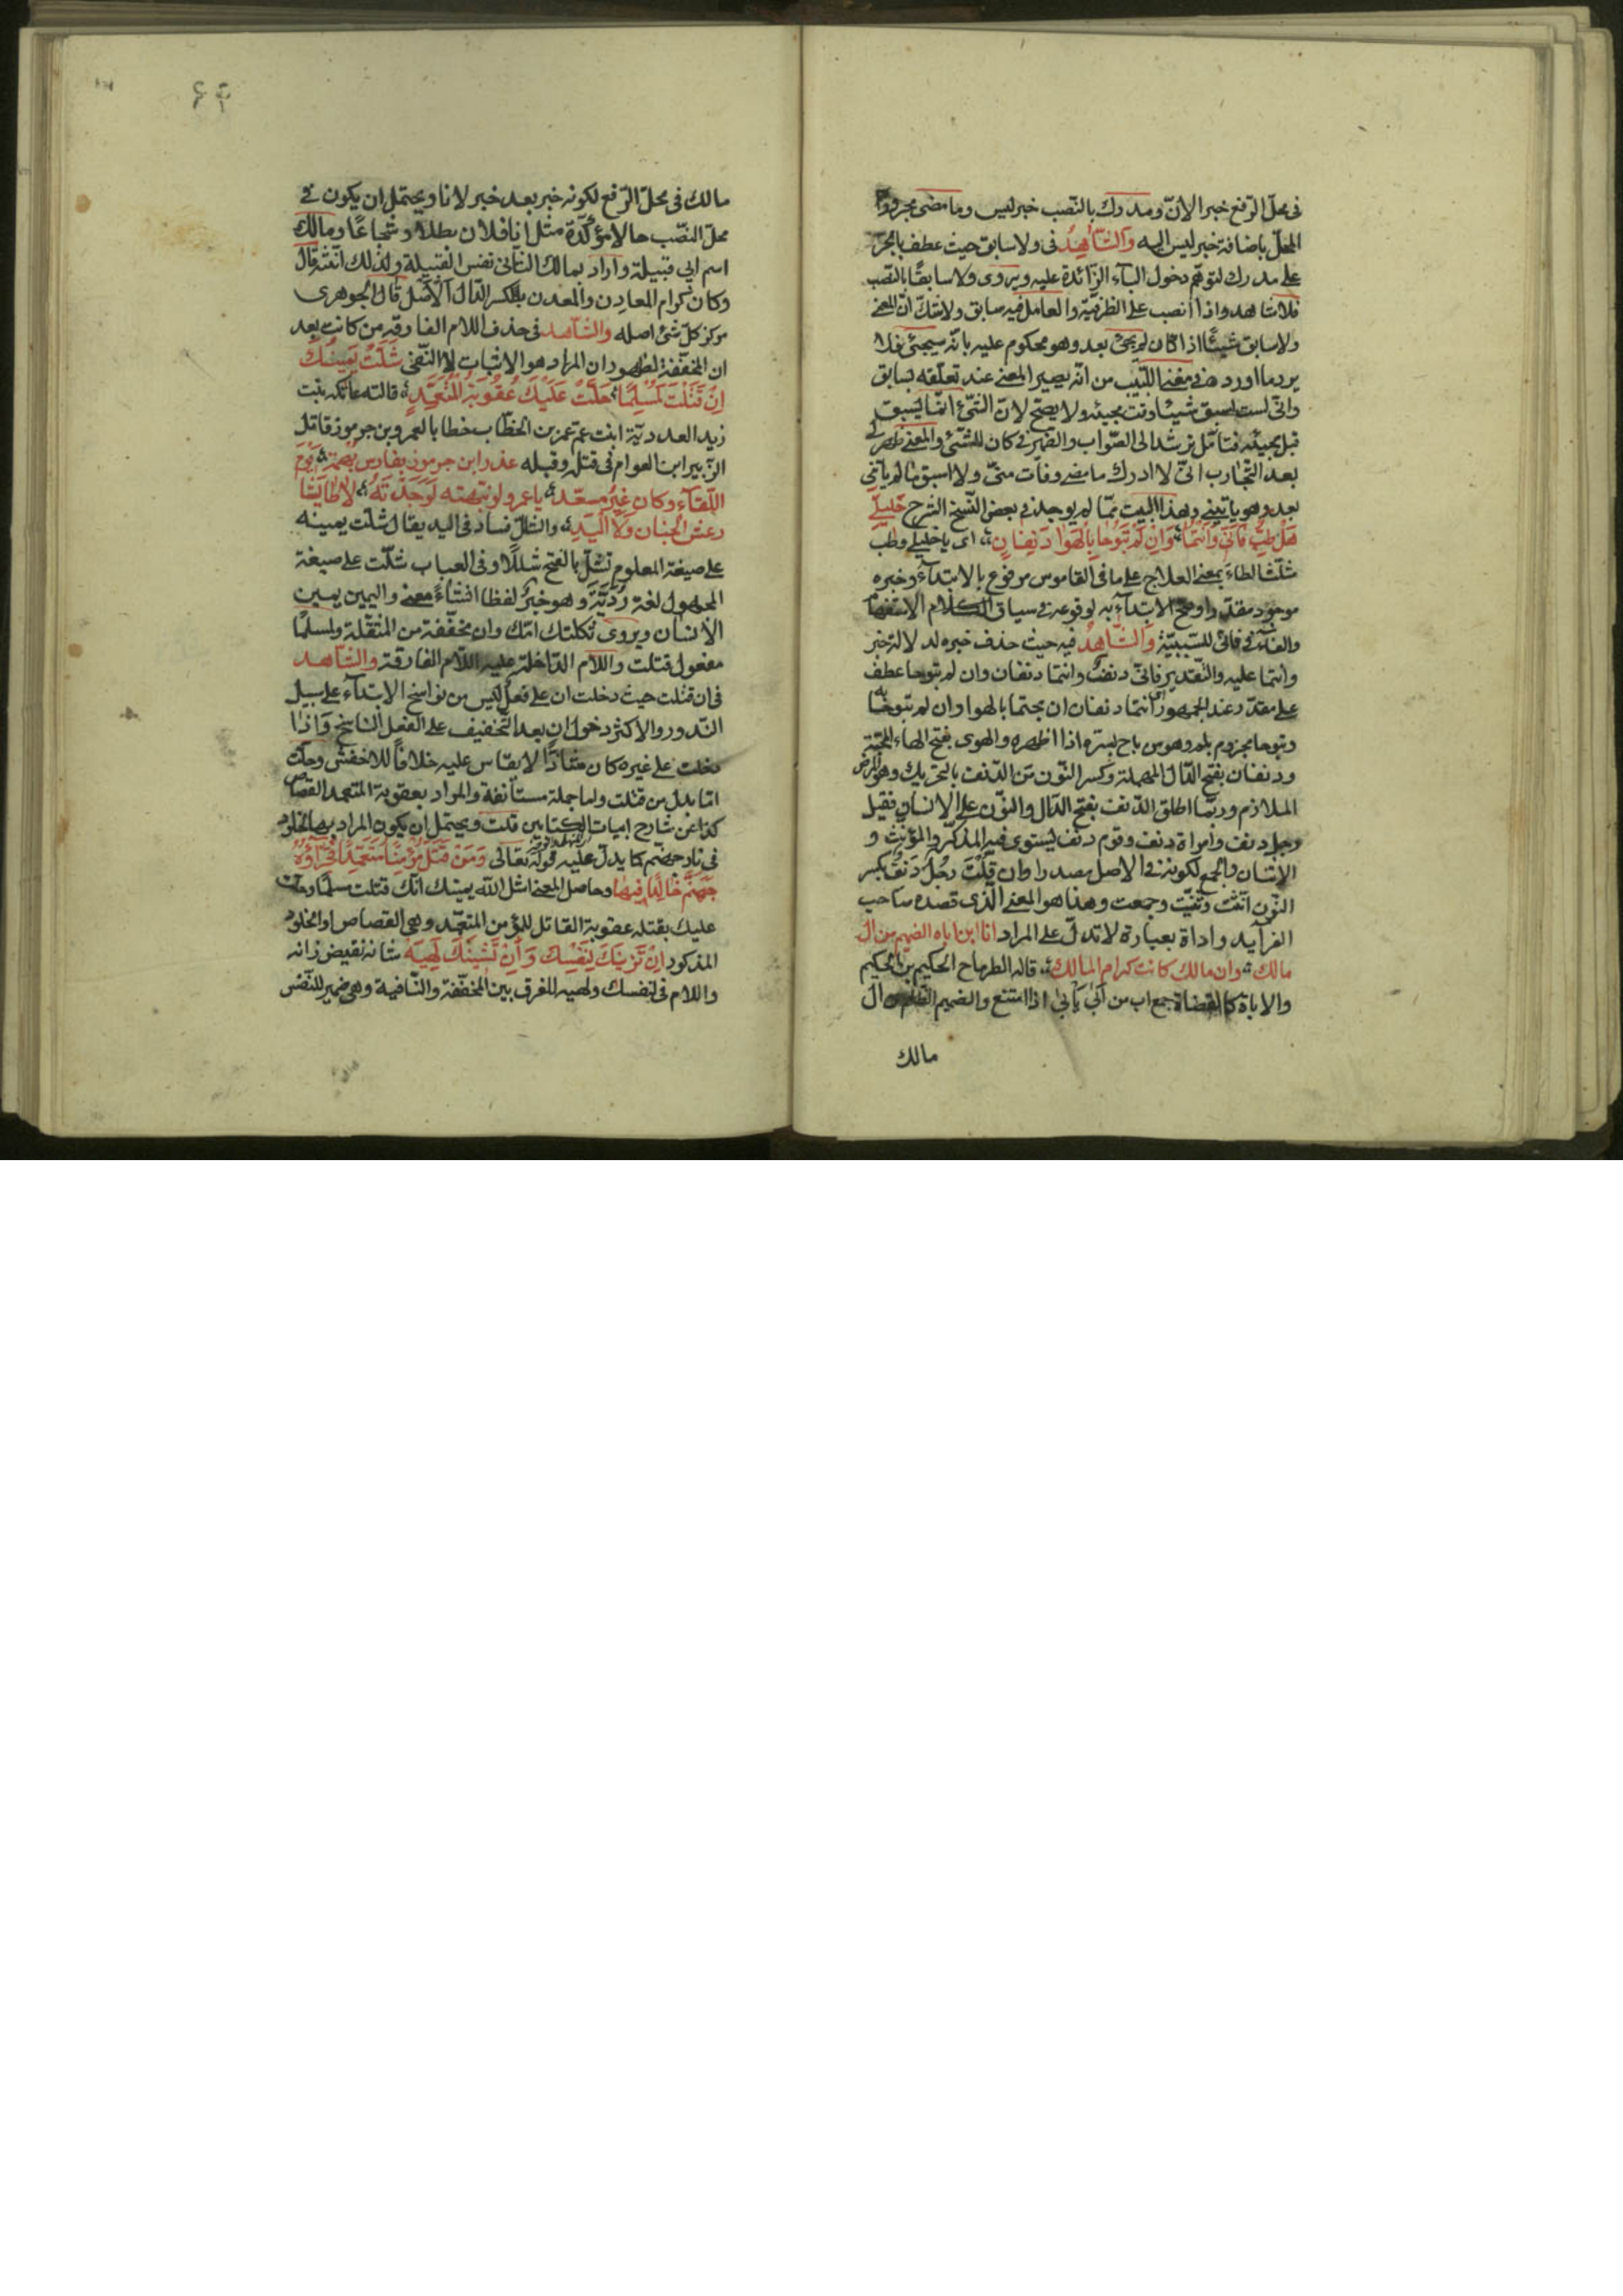 فى محلّ الرّفع خبر الانّ ومدرك بالنّصب خبر ليس وما مضى مجرور
المحلّ باضافة خبر ليس اليه والشّاهدُ فى ولا سابق حيث عطف بالجرّ
على مدرك لتوهّم دخول الباء الزّائدة عليه ويروى ولا سابقًا بالنّصب
فلا شاهد واذا انصب على الظرفيّة والعامل فيه سابق ولا شكّ انّ المعنى
ولا سابق شيئًا اذا كان لم يجئ بعد وهو محكوم عليه بانّه سيجئ فلا
يرد ما اورد فى مغنى اللّبيب من انّه يصير المعنى عند تعلّقه بسابق
وانّى لست اسبق شيئا وقت مجيئه ولا يصحّ لانّ الشّئ انّما يسبق
قبل مجيئه فتامّل ترشد الى الصّواب والضّمير فى كان للشّئ والمعنى ظهر لى
بعد التّجارب انّى لا ادرك ما مضى وفات منّى ولا اسبق ما لم ياتنى
بعد وهو ياتينى وهذا البيت ممّا لم يوجد فى بعض النّسخ الشرح خَليلَىَّ
هَلْ طِبٌّ فَانّى وَانْتُمَا وَاِنْ لَمْ تَبُوحَا بِالهَوٰا دَنِفٰانِ اى يا خليلى وطب
مثلّث الطاء بمعنى العلاج على ما فى القاموس مرفوع بالابتداء وخبره
موجود مقدّر وصحّ الابتداء به لوقوعه فى سياق الكلام الاستفهام
والفاء فى فانّى للسّببيّة والشّاهدُ فيه حيث حذف خبره لدلالة خبر
وانتما عليه والتّقدير فانّى دنف وانتما دنفان وان لم تبوحا عطف
على مقدّر عند الجمهور اى انتما دنفان ان بحتما بالهوا وان لم تبوحا به
وتبوحا مجزوم بلم وهو من باح بسرّه اذا اظهره والهوى بفتح الهاء المحبّة
ودنفان بفتح الدّال المهملة وكسر النّون من الدّنف بالتحريك وهو المرض
الملازم وربّما اطلق الدّنف بفتح الدّال والنّون على الانسان فقيل
رجل دنف وامراة دنف وقوم دنف يستوى فيه المذكّر والمؤنّث و
الاثنان والجمع لكونه فى الاصل مصدرا وان قُلْتَ رَجُلٌ دَنِفٌ بكسر
النّون انّثت وثنّيت وجمعت وهذا هو المعنى الّذى قصده صاحب
الفرآيد واداة بعبارة لا تدلّ على المراد انا ابن اباه الضّيم من ال
مالك وان مالك كانت كرام المالك قاله الطرماح الحكيم بن الحكيم
والاباة كالقضاة جمع اب من ابى يأبى اذا امتنع والضيم الظلم ال
مالك
مالك فى محلّ الرّفع لكونه خبر بعد خبر لانا ويحتمل ان يكون فى
محلّ النصّب حالا مؤكّدة مثل انا فلان بطلا وشجاعًا ومالك
اسم ابى قبيلة واراد بمالك الثانى نفس القبيلة ولذلك انّثه قال
وكان كرام المعادن والمعدن بكسر الدّال الاصل قال الجوهرى
مركز كلّ شئ اصله والشّاهد فى حذف اللام الفارقة من كانت بعد
ان المخفّفة لظهور ان المراد هو الاثبات لا النّفى شَلَّتْ يَمينُكَ
اِنْ قَتَلْتَ لَمُسْلِمًا حَلَّتْ عَلَيْكَ عُقُوبَةُ المُتَعَمِّدِ قالته عاتكه بنت
زيد العدديّة ابنت عمّ عمر بن الخطّاب خطابا لعمرو بن جرموز قاتل
الزّبير ابن العوام فى قتله وقبله عذر ابن جرموز بفارس بُهمة يَوْمَ
اللّقآءِ وكان غَيْرَ مسعّدِ ياعمرو لو نبّهته لَوَجَدْتَهُ لا طايشا
رعش الجنان ولا اليَدِ والشلّ فساد فى اليد يقال شلّت يمينه
على صيغة المعلوم تشلّ بالفتح شللًا وفى العباب شلّت على صيغة
المجهول لغة ردّيّة وهو خبرٌ لفظا انشاءً معنى واليمين يمين
الانسان ويروى ثكلتك امّك وان مخفّفة من المثقّلة ولمسلمًا
مفعول قتلت واللام الدّاخلة عليه اللّام الفارقة والشّاهد
فى ان قتلت حيث دخلت ان على فعل ليس من نواسخ الابتدآء على سبيل
النّدور والاكثر دخول ان بعد التّخفيف على الفعل النّاسخ وَاذا
دخلت على غيره كان شاذًا لا يقاس عليه خلافًا للاخفش وحلّت
امّا بدل من قتلت واما جملة مستأنفة والمراد بعقوبة المتعمد القصاص
كذا عن شارح ابيات الكتابين قلت ويحتمل ان يكون المراد بها الخلود
فى نار جهنّم كما يدلّ عليه قوله تعالى وَمَنْ قَتَلَ مُؤْمِنًا مُتَعَمِّدًا فَجَزآؤُهُ
جَهَنَّمُ خٰالِدًا فيهٰا وحاصل المعنى اشل الله يمينك انّك قتلت مسلمًا وحلّت
عليك بقتله عقوبة القاتل للمؤمن المتعمّد وهى القصاص او الخلود
المذكود اِنْ تَزينَكَ لَنَفْسُكَ وَاِنْ تَشينُكَ لَهِيَهْ شانه نقيض زانه
واللام فى لنفسك ولهيه للفرق بين المخفّفة والنّافية وهى ضمير للنّفس